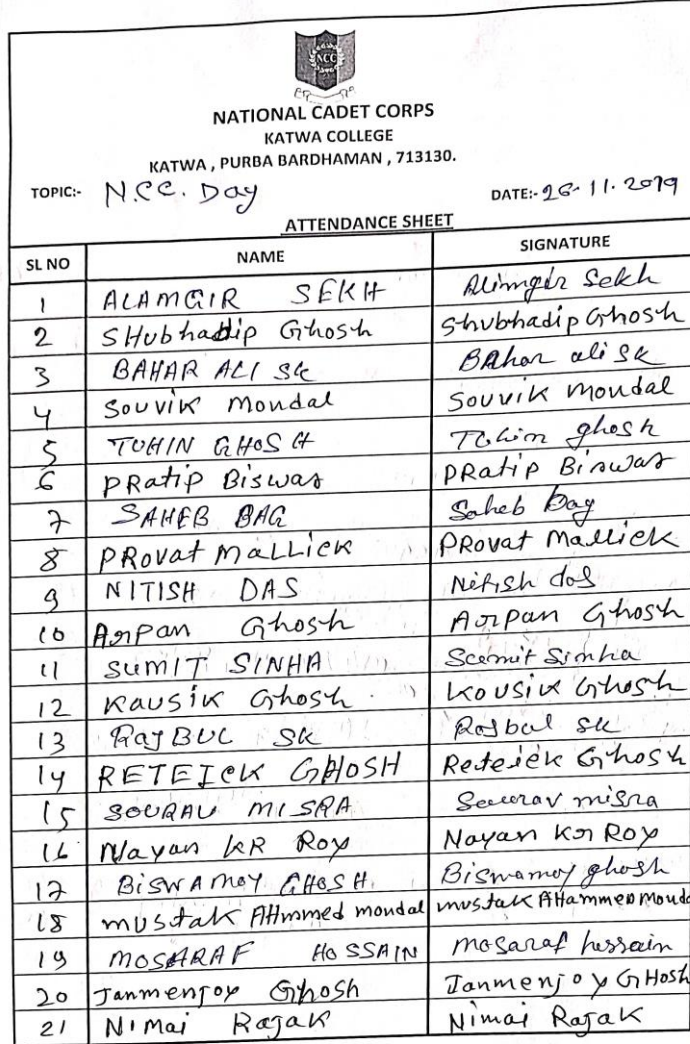 NCC
NATIONAL CADET CORPS
KATWA COLLEGE
KATWA , PURBA BARDHAMAN , 713130.
TOPIC:- N.C.C. Day DATE:- 26.11.2019
ATTENDANCE SHEET
SL NO NAME SIGNATURE
1 ALAMGIR SEKH Alimgir Sekh
2 SHubhadip Ghosh Shubhadip Ghosh
3 BAHAR ALI SK BAhar ali SK
4 Souvik Mondal Souvik Mondal
5 TUHIN GHOSH Tuhin ghosh
6 PRatip Biswas PRatip Biswas
7 SAHEB BAG Saheb Bag
8 PRovat MALLICK PRovat Mallick
9 NITISH DAS Nitish das
10 Arpan Ghosh Arpan Ghosh
11 SUMIT SINHA Sumit Sinha
12 Kausik Ghosh Kousik Ghosh
13 RAJBUL SK Rajbul SK
14 RETEICK GHOSH Reteick Ghosh
15 SOURAV MISRA Sourav misra
16 Nayan KR Roy Nayan Kr Roy
17 BISWAMOY GHOSH Biswamoy ghosh
18 mustak AHmmed mondal mustak AHammed Mond
19 MOSARAF HOSSAIN mosaraf hossain
20 Janmenjoy Ghosh Janmenjoy GHosh
21 Nimai Rajak Nimai Rajak